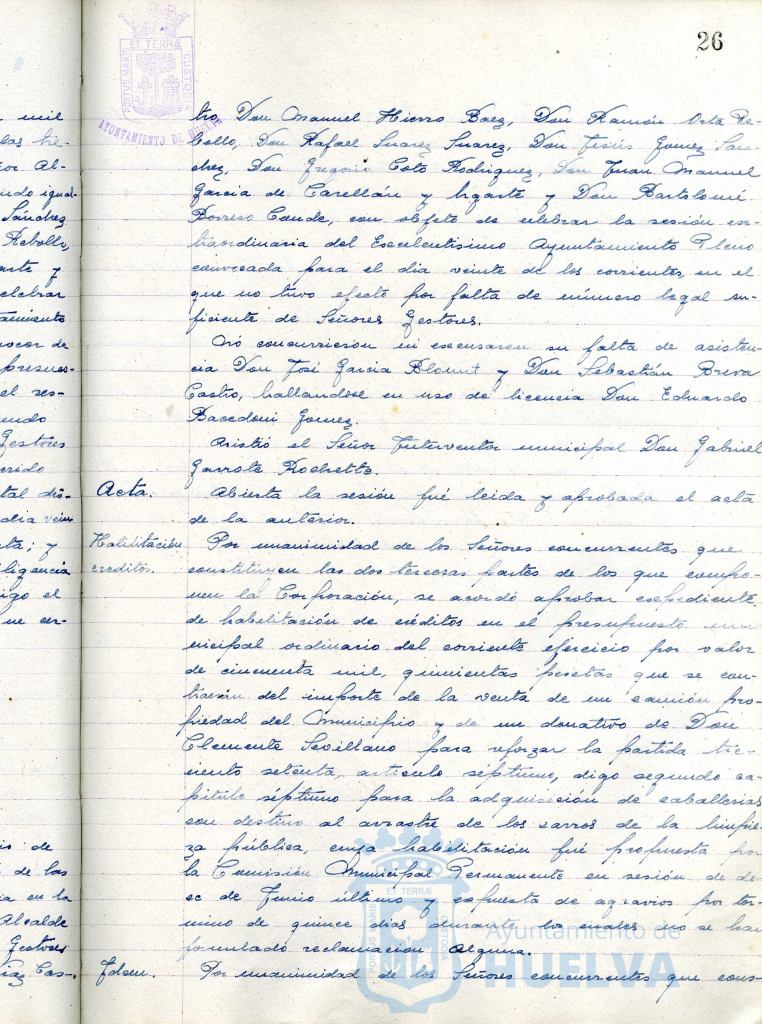 26
PORTUS MARIS ET TERRÆ CUSTODIA
AYUNTAMIENTO DE HUELVA
mil
Al-
Sánchez
Rebollo,
celebrar
el
Gestores
el
de
de las
en la
Alcalde
Gestores
Cas-
tro, Don Manuel Hierro Baez, Don Ramón Orta Re-
bollo, Don Rafael Suarez Suarez, Don Jesús Gomez San-
chez, Don Gregorio Coto Rodriguez, Don Juan Manuel
Garcia de Carellán y Ugarte y Don Bartolomé
Borrero Conde, con objeto de celebrar la sesión ex-
traordinaria del Excelentisimo Ayuntamiento Pleno
convocada para el dia veinte de los corrientes, en el
que no tuvo efecto por falta de número legal su-
ficiente de Señores Gestores.
No concurrieron ni excusaron su falta de asisten-
cia Don José Garcia Blount y Don Sebastián Breva
Castro, hallandose en uso de licencia Don Eduardo
Bacedoni Gomez.
Asistió el Señor Interventor municipal Don Gabriel
Garrote Rochette.
Acta. Abierta la sesión fué leida y aprobada el acta
de la anterior.
Habilitación Por unanimidad de los Señores concurrentes que
creditos. constituyen las dos terceras partes de los que compo-
nen la Corporación, se acordó aprobar expediente
de habilitación de créditos en el presupuesto mu-
nicipal ordinario del corriente ejercicio por valor
de cincuenta mil, quinientas pesetas que se con-
traerán del importe de la venta de un camión pro-
piedad del Municipio y de un donativo de Don
Clemente Sevillano para reforzar la partida tre-
ciento setenta, articulo séptimo, digo segundo ca-
pitulo séptimo para la adquisición de caballerias
con destino al arrastre de los carros de la limpie-
za pública, cuya habilitación fué propuesta por
la Comisión Municipal Permanente en sesión de do-
ce de Junio último y expuesta de agravios por ter-
mino de quince dias durante los cuales no se han
formulado reclamación alguna.
Idem. Por unanimidad de los Señores concurrentes que cons-
PORTUS MARIS ET TERRÆ CUSTODIA
Ayuntamiento de
HUELVA